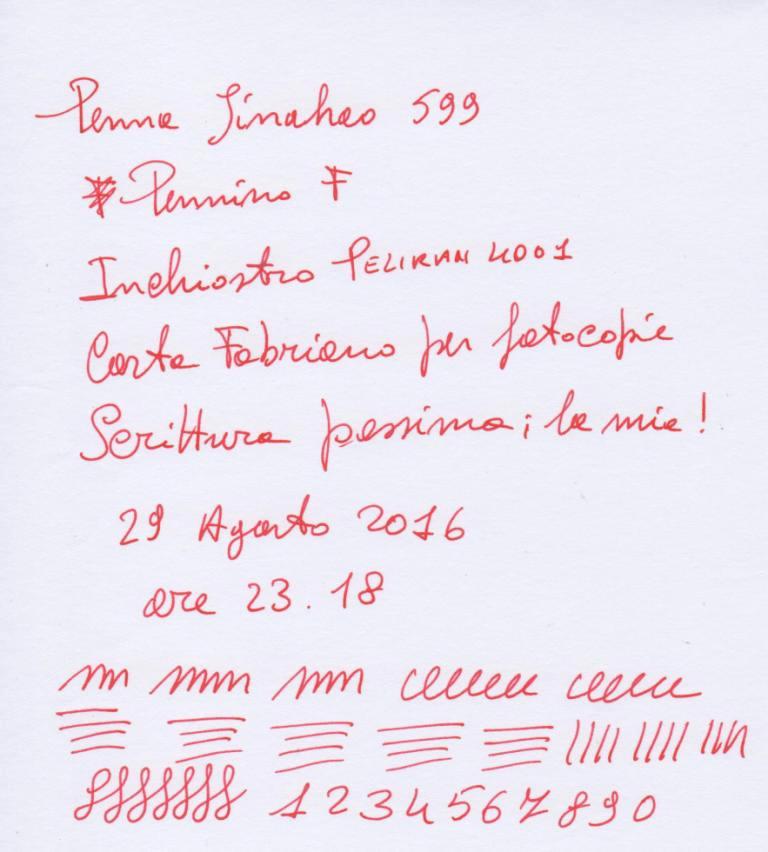 Penna Jinahao 599
Pennino F
Inchiostro PELIKAN 4001
Carta Fabriano per fotocopie
Scrittura pessima; la mia!
29 Agosto 2016
ore 23.18
1234567890